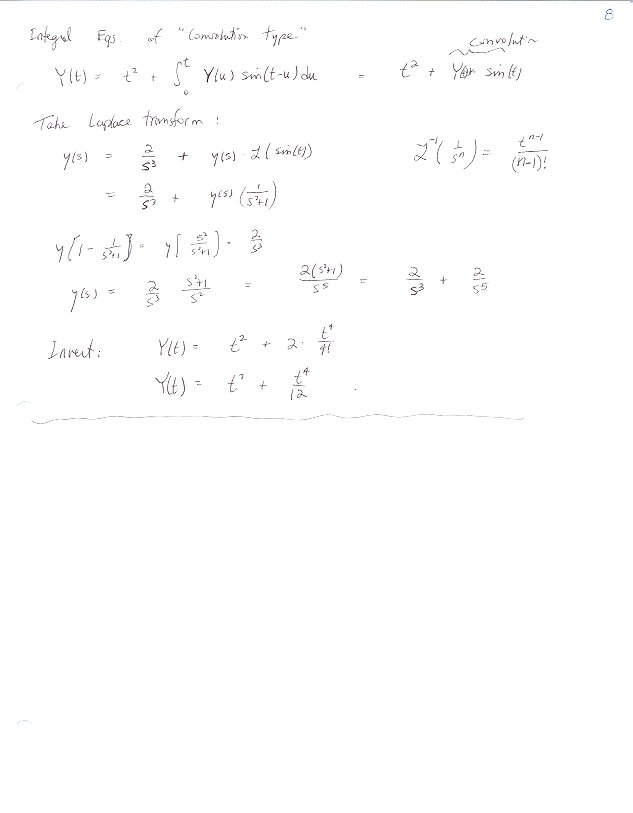 8
Integral Eqs. of "Convolution type"
convolution
Y(t) = t² + ∫₀ᵗ Y(u) sin(t-u) du = t² + Y(t)* sin(t)
Take Laplace transform :
y(s) = 2/s³ + y(s) · ℒ(sin(t)) ℒ⁻¹(1/sⁿ) = tⁿ⁻¹/(n-1)!
= 2/s³ + y(s) (1/(s²+1))
y[1 - 1/(s²+1)] = y[s²/(s²+1)] = 2/s³
y(s) = 2/s³ (s²+1)/s² = 2(s²+1)/s⁵ = 2/s³ + 2/s⁵
Invert: Y(t) = t² + 2 · t⁴/4!
Y(t) = t² + t⁴/12 .